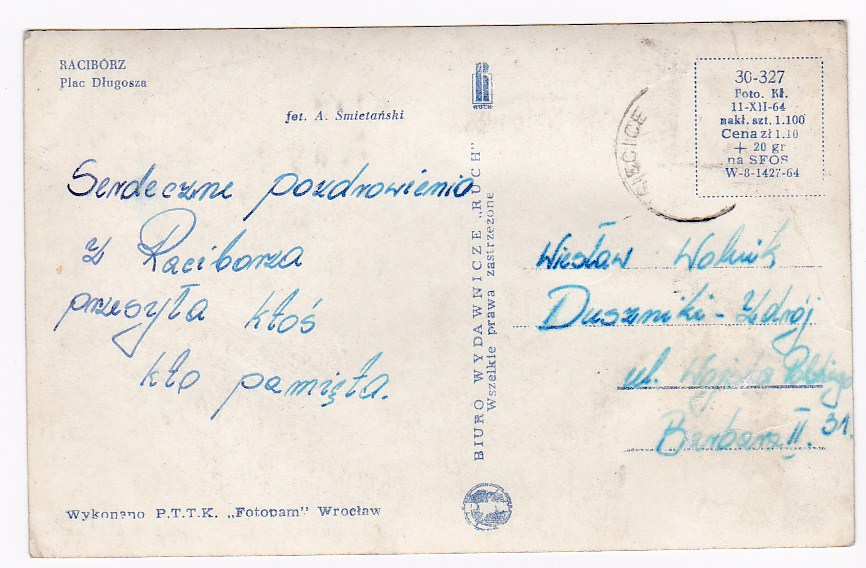 RACIBÓRZ
Plac Długosza
fot. A. Śmietański
Serdeczne pozdrowienia
z Raciborza
przesyła ktoś
kto pamięta.
Wykonano P.T.T.K. „Fotopam" Wrocław
RUCH
BIURO WYDAWNICZE „RUCH"
Wszelkie prawa zastrzeżone
30-327
Foto. Kł.
11-XII-64
nakł. szt. 1.100
Cena zł 1.10
+ 20 gr
na SFOS
W-8-1427-64
Wiesław Wolnik
Duszniki-Zdrój
ul. Wojska Polskiego
Barbara II. 31.